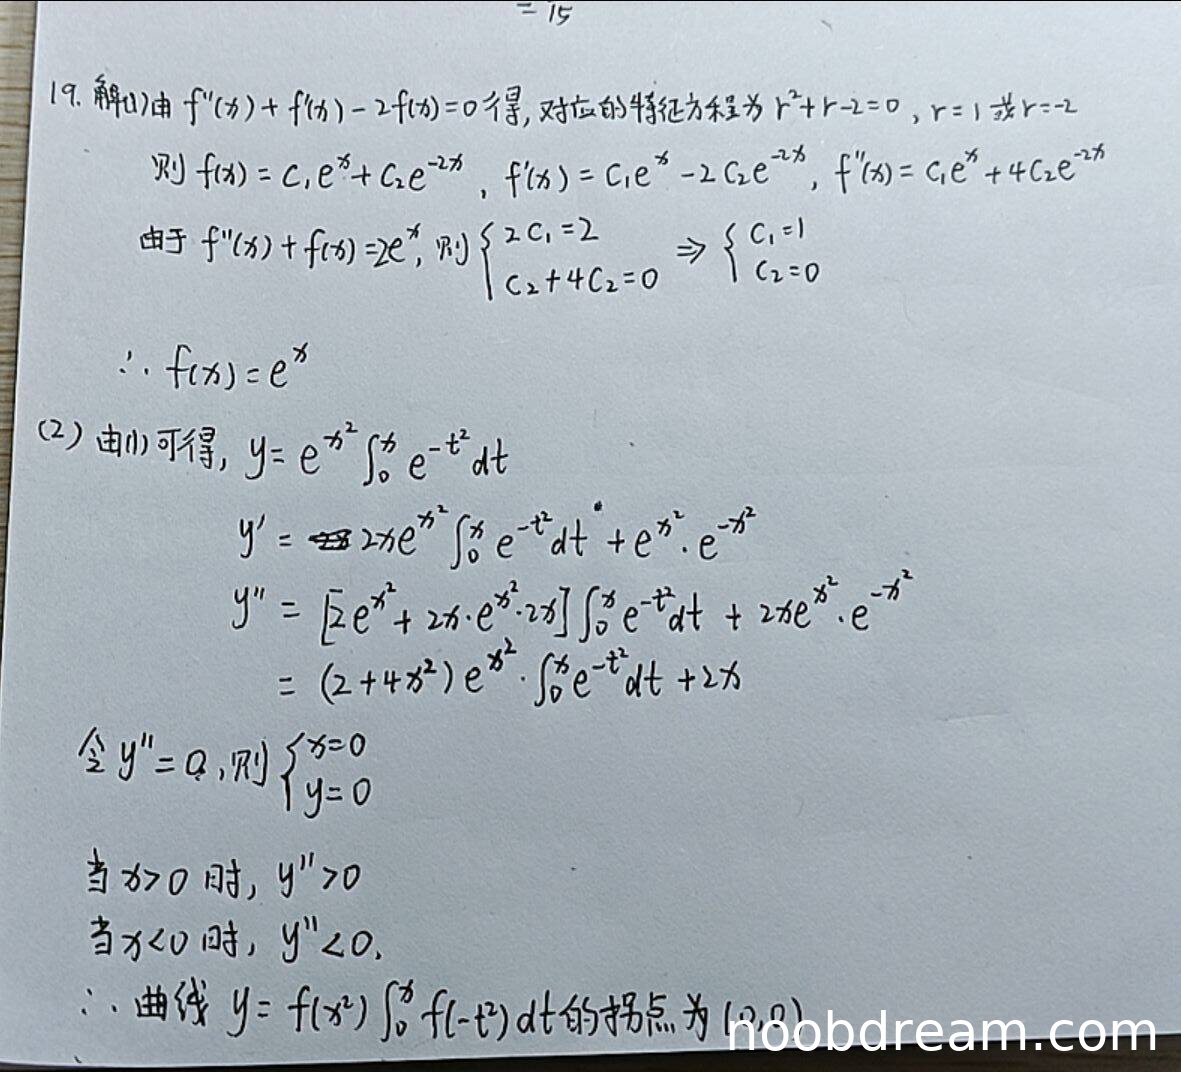 = 15
19. 解(1)由 f''(x) + f'(x) - 2f(x) = 0 得, 对应的特征方程为 r²+r-2=0, r=1 或 r=-2
则 f(x) = C₁eˣ + C₂e⁻²ˣ, f'(x) = C₁eˣ - 2C₂e⁻²ˣ, f''(x) = C₁eˣ + 4C₂e⁻²ˣ
由于 f''(x) + f(x) = 2eˣ, 则 { 2C₁ = 2, C₂ + 4C₂ = 0 ⇒ { C₁ = 1, C₂ = 0
∴ f(x) = eˣ
(2) 由(1)可得, y = e^{x²} ∫₀ˣ e^{-t²} dt
y' = 2xe^{x²} ∫₀ˣ e^{-t²} dt + e^{x²} · e^{-x²}
y'' = [2e^{x²} + 2x · e^{x²} · 2x] ∫₀ˣ e^{-t²} dt + 2xe^{x²} · e^{-x²}
= (2 + 4x²) e^{x²} · ∫₀ˣ e^{-t²} dt + 2x
令 y'' = 0, 则 { x = 0, y = 0
当 x > 0 时, y'' > 0
当 x < 0 时, y'' < 0.
∴ 曲线 y = f(x²) ∫₀ˣ f(-t²) dt 的拐点为 (0,0)
noobdream.com